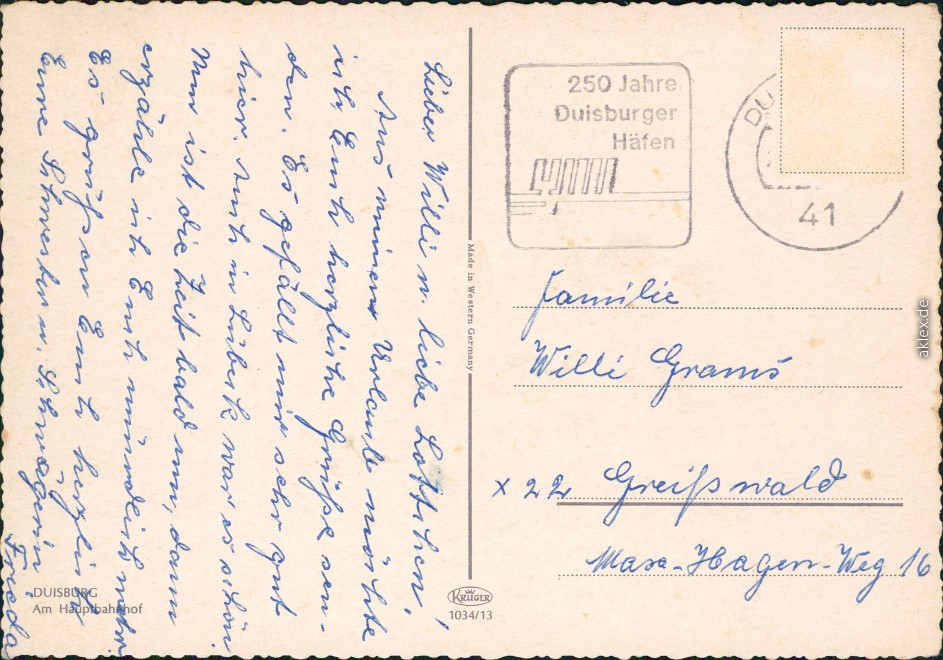 Lieber Willi u. liebe Lottchen,
Aus meinem Urlaub möchte
ich Euch herzliche Grüße sen-
den. Es gefällt mir sehr gut
hier. Auch in Lübeck war es schön
Nun ist die Zeit bald um, dann
erzähle ich Euch mündlich mehr.
Es grüßen Euch herzlich
Eure Schwester u. Schwägerin
Frieda
DUISBURG
Am Hauptbahnhof
Made in Western Germany
KRÜGER
1034/13
250 Jahre
Duisburger
Häfen
DU
41
Familie
Willi Grams
x 22 Greifswald
Maxa-Hagen-Weg 16
aklex.de